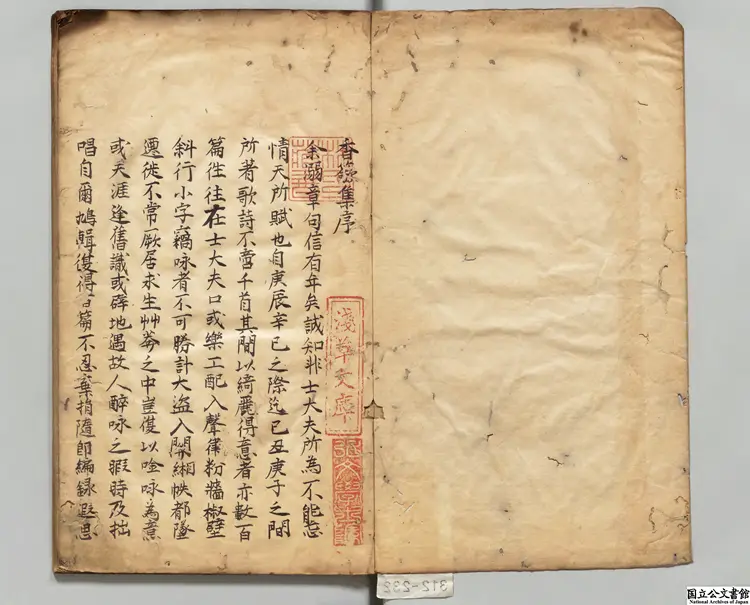 香奩集序
余溺章句信有年矣誠知非士大夫所為不能忘
情天所賦也自庚辰辛巳之際迄己丑庚子之間
所著歌詩不啻千首其間以綺麗得意者亦數百
篇往往在士大夫口或樂工配入聲律粉牆椒壁
斜行小字竊咏者不可勝計大盜入關緗帙都墜
遷徙不常厥居求生艸莽之中豈復以吟咏為意
或天涯逢舊識或辟地遇故人醉咏之暇時及拙
唱自爾鳩輯復得百篇不忍棄捐隨即編錄遐思
淺草文庫
312-232
国立公文書館
National Archives of Japan